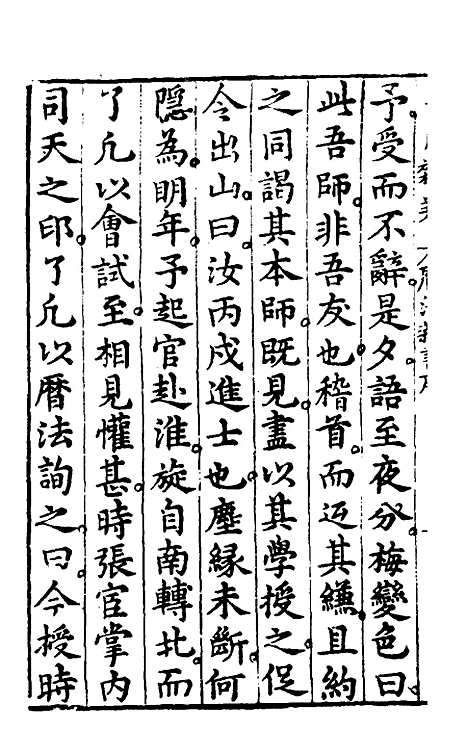 予受而不辭。是夕。語至夜分。梅變色曰。
此吾師。非吾友也。稽首。而返其縑。且約
之同謁其本師。既見。盡以其學授之。促
令出山。曰。汝丙戍進士也。塵緣未斷。何
隱為。明年。予起官赴淮。旋自南轉北。而
了凡以會試至。相見懽甚。時張宦掌內
司天之印。了凡以曆法詢之。曰。今授時